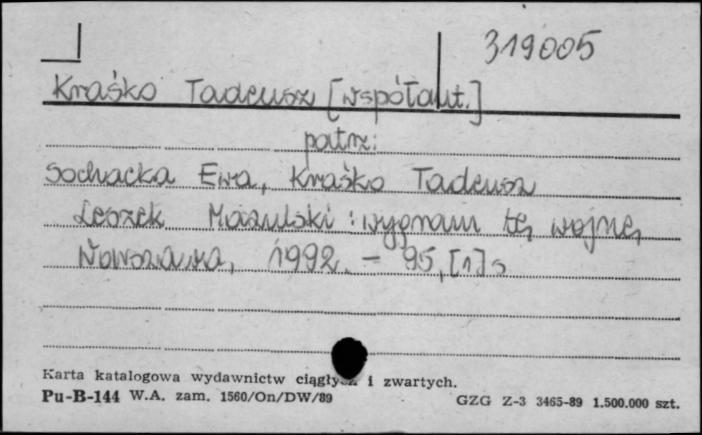 319005
Kraśko Tadeusz [współaut.]
patrz:
Sochacka Ewa, Kraśko Tadeusz
Leszek Mazulski : wygram tę wojnę,
Warszawa, 1992. - 95, [1] s
Karta katalogowa wydawnictw ciągłych i zwartych.
Pu-B-144 W.A. zam. 1560/On/DW/89
GZG Z-3 3465-89 1.500.000 szt.